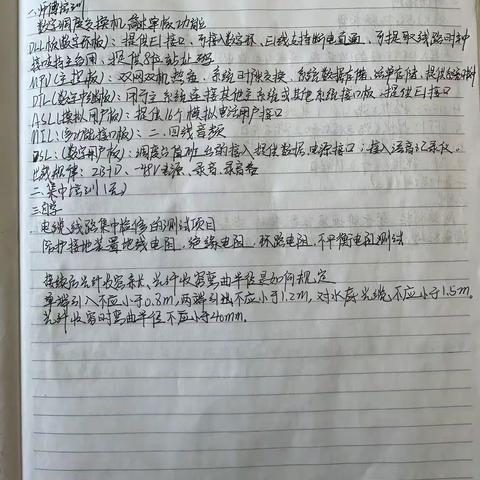 一、师傅培训
数字调度交换机各单板功能
DLL板(数字环板):提供E1接口,可接入数字环、E1线支持断电直通,可提取线路时钟
提供8位站址
MPU(主控板):双网双机热备,系统时隙交换,系统数据存储,话单存储,提供
DTL(数字中继板):用于主系统连接其他主系统或其他系统接口板,提供E1接口
ASL(模拟用户板):提供16个模拟电话用户接口
MIL:(多功能接口板):二、四线音频
DSL:(数字用户板):调度台值班台的接入提供数据,电源接口;接入语音记录仪。
2B+D、-48V电源、录音、录音
二、集中培训(无)
三自学
电缆线路集中检修的测试项目
防护接地装置地线电阻,绝缘电阻,环路电阻,不平衡电阻测试
接续后光纤收容余长、光纤收容弯曲半径是如何规定
单端引入不应小于0.8m,两端引出不应小于1.2m,对水底光缆不应小于1.5m。
光纤收容时弯曲半径不应小于40mm。